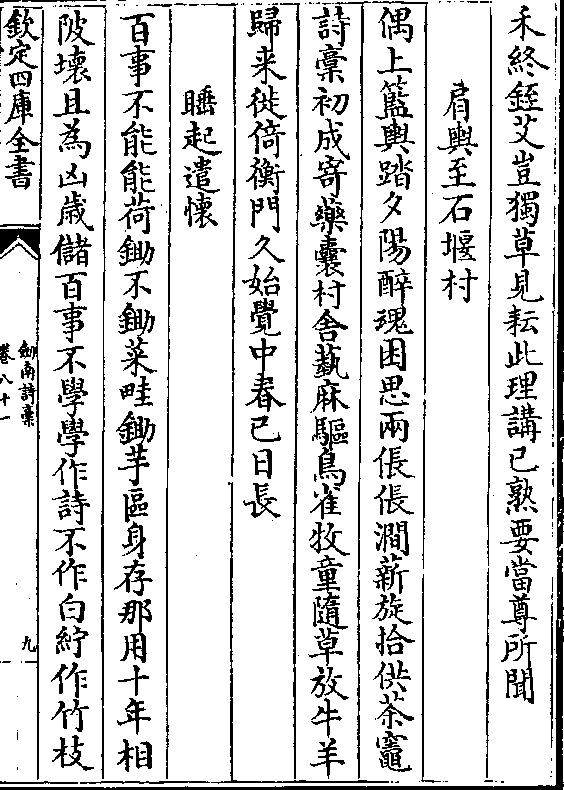 禾終銍艾豈獨草見耘此理講已熟要當尊所聞
肩輿至石堰村
偶上籃輿踏夕陽醉魂困思兩倀倀澗薪旋拾供茶竈
詩藁初成寄藥囊村舍蓺麻驅鳥雀牧童隨草放牛羊
歸来徙倚衡門久始覺中春已日長
睡起遣懷
百事不能能荷鋤不鋤菜畦鋤芋區身存那用十年相
陂壞且為凶歳儲百事不學學作詩不作白紵作竹枝
欽定四庫全書
劍南詩藁
卷八十一
九